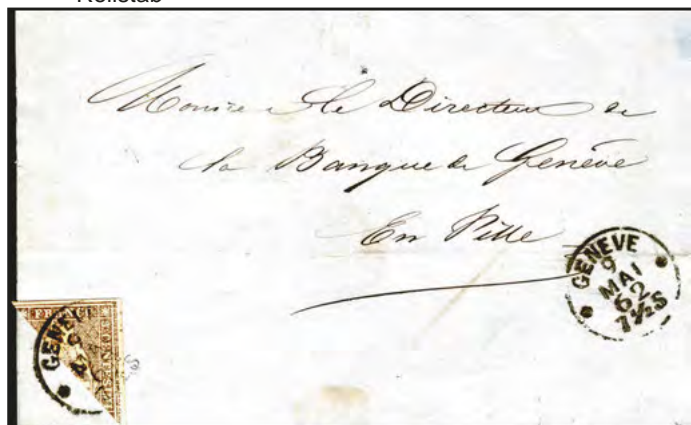 Rellstab
Monsieur le Directeur de
la Banque de Genève
En Ville
GENÈVE
9
MAI
62
7½S
FRANCO
GENÈV